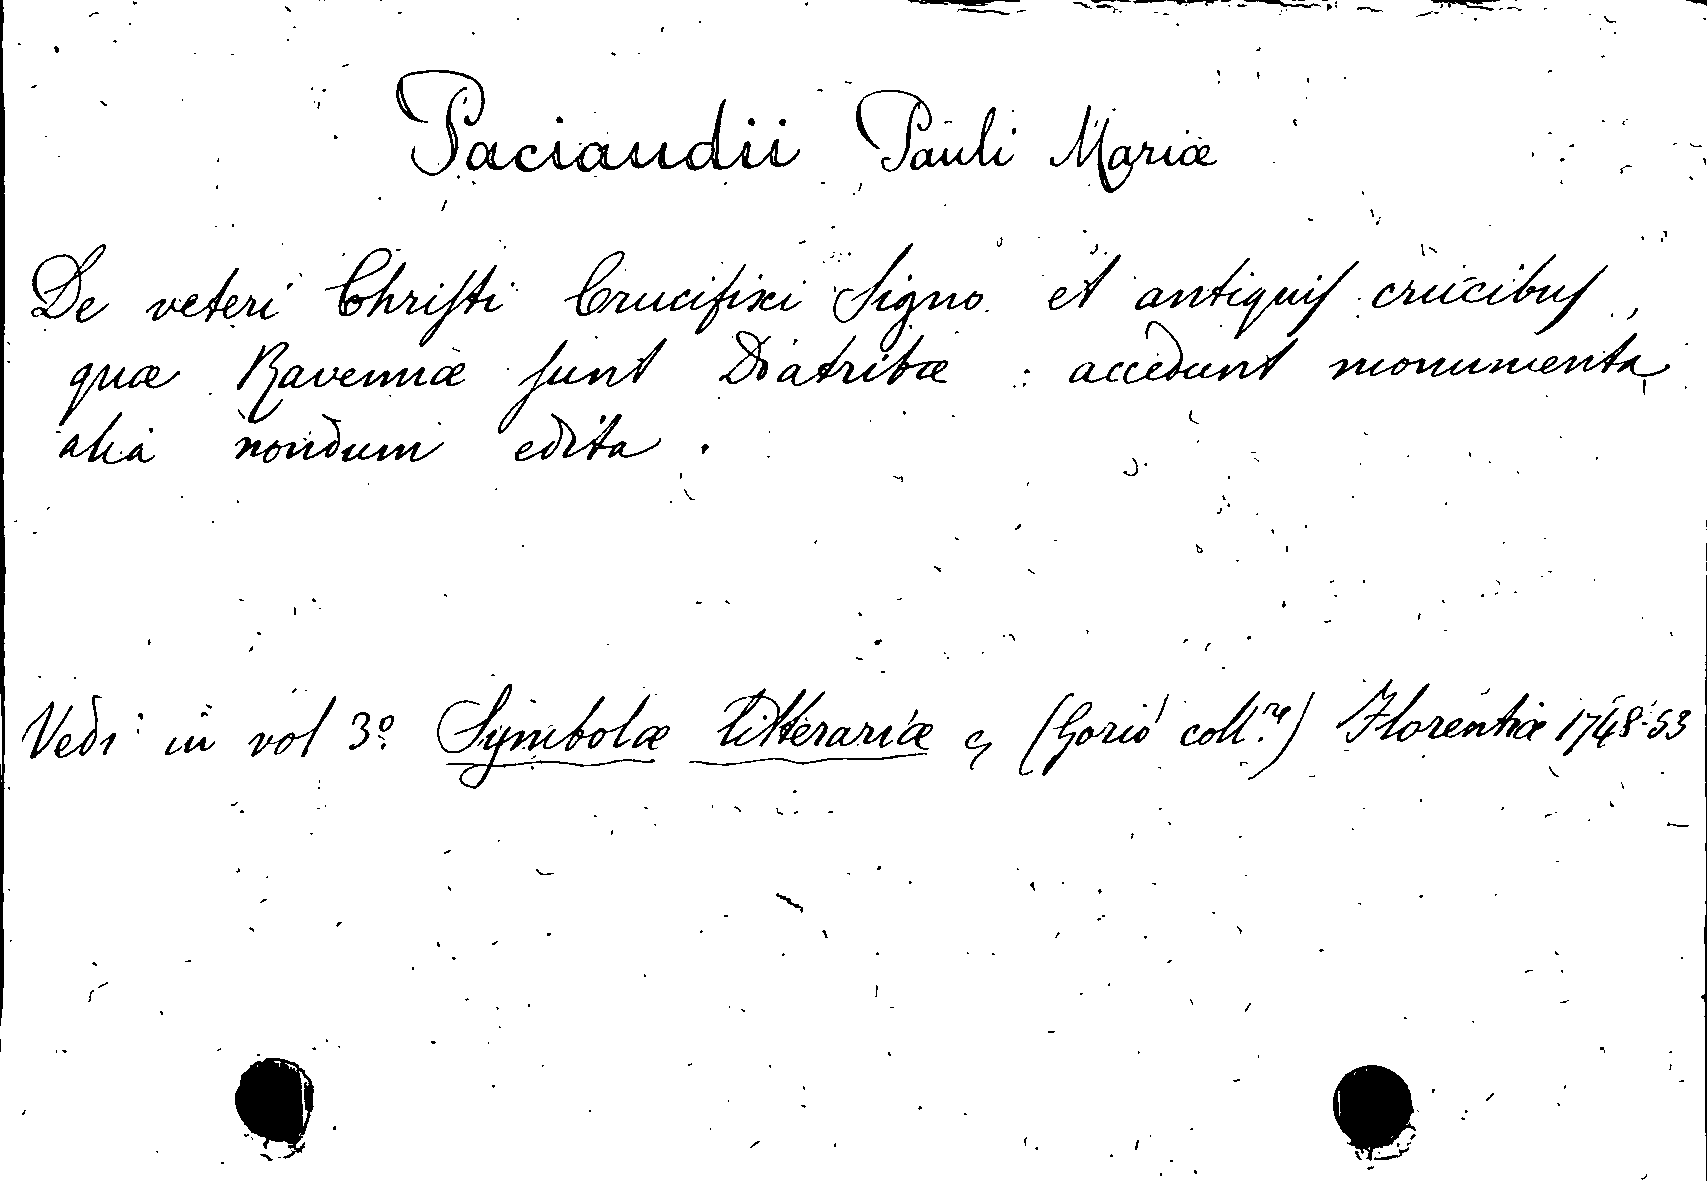 Paciaudii Pauli Mariæ
De veteri Christi Crucifixi Signo et antiquis crucibus,
quæ Ravennæ sunt Diatribæ : accedunt monumenta
alia nondum edita.
Vedi in vol 3º Symbolæ litterariæ (Gorio coll.re) Florentiæ 1748-53